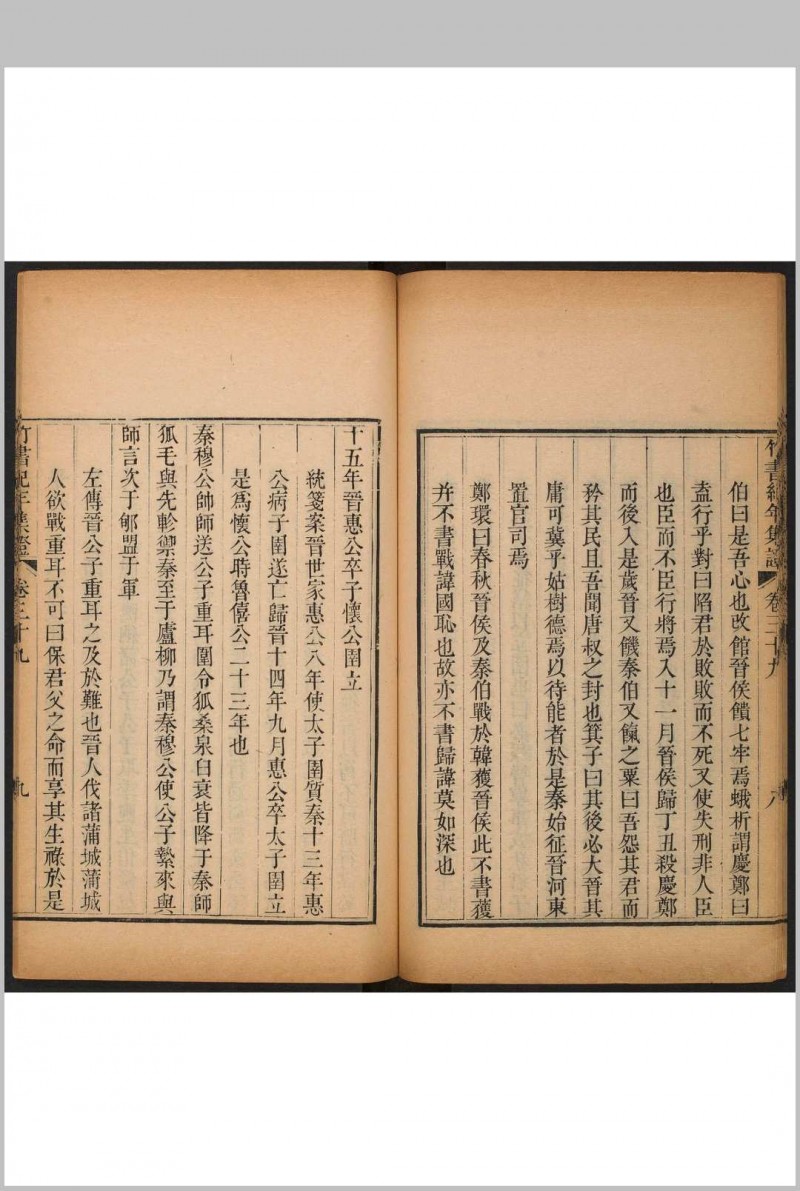 竹書紀年集證 卷三十九 八
伯曰是吾心也改館晉侯饋七牢焉蛾析謂慶鄭曰
盍行乎對曰陷君於敗敗而不死又使失刑非人臣
也臣而不臣行將焉入十一月晉侯歸丁丑殺慶鄭
而後入是歲晉又饑秦伯又餼之粟曰吾怨其君而
矜其民且吾聞唐叔之封也箕子曰其後必大晉其
庸可冀乎姑樹德焉以待能者於是秦始征晉河東
置官司焉
鄭環曰春秋晉侯及秦伯戰於韓獲晉侯此不書獲
并不書戰諱國恥也故亦不書歸諱莫如深也
十五年晉惠公卒子懷公圉立
統箋案晉世家惠公八年使太子圉質秦十三年惠
公病子圉遂亡歸晉十四年九月惠公卒太子圉立
是為懷公時魯僖公二十三年也
秦穆公帥師送公子重耳圍令狐桑泉臼衰皆降于秦師
狐毛與先軫禦秦至于廬柳乃謂秦穆公使公子縶來與
師言次于郇盟于軍
左傳晉公子重耳之及於難也晉人伐諸蒲城蒲城
人欲戰重耳不可曰保君父之命而享其生祿於是
竹書紀年集證 卷三十九 九